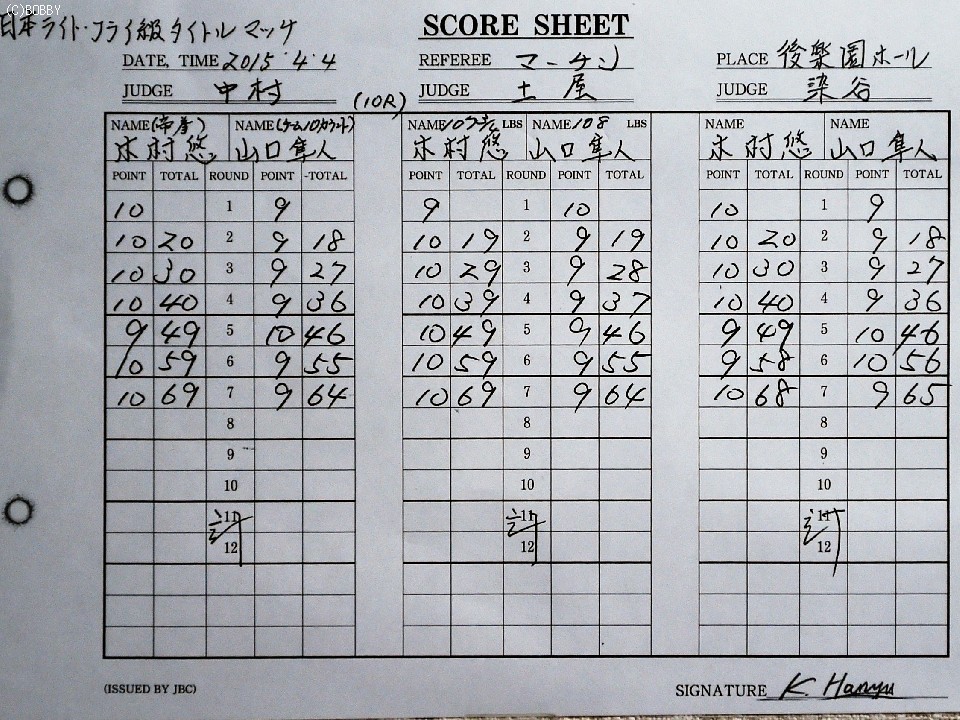 (C)BOBBY
日本ライト・フライ級タイトルマッチ
SCORE SHEET
DATE, TIME 2015.4.4 REFEREE マーチン PLACE 後楽園ホール
JUDGE 中村 (10R) JUDGE 土屋 JUDGE 染谷
NAME (帝拳) NAME (ゲーム10カウント) NAME LBS NAME 108 LBS NAME NAME
木村悠 山口隼人 木村悠 山口隼人 木村悠 山口隼人
POINT TOTAL ROUND POINT TOTAL POINT TOTAL ROUND POINT TOTAL POINT TOTAL ROUND POINT TOTAL
10 1 9 9 1 10 10 1 9
10 20 2 9 18 10 19 2 9 19 10 20 2 9 18
10 30 3 9 27 10 29 3 9 28 10 30 3 9 27
10 40 4 9 36 10 39 4 9 37 10 40 4 9 36
9 49 5 10 46 10 49 5 9 46 9 49 5 10 46
10 59 6 9 55 10 59 6 9 55 9 58 6 10 56
10 69 7 9 64 10 69 7 9 64 10 68 7 9 65
8 8 8
9 9 9
10 10 10
11 11 11
12 12 12
(ISSUED BY JBC) SIGNATURE K. Hanyu